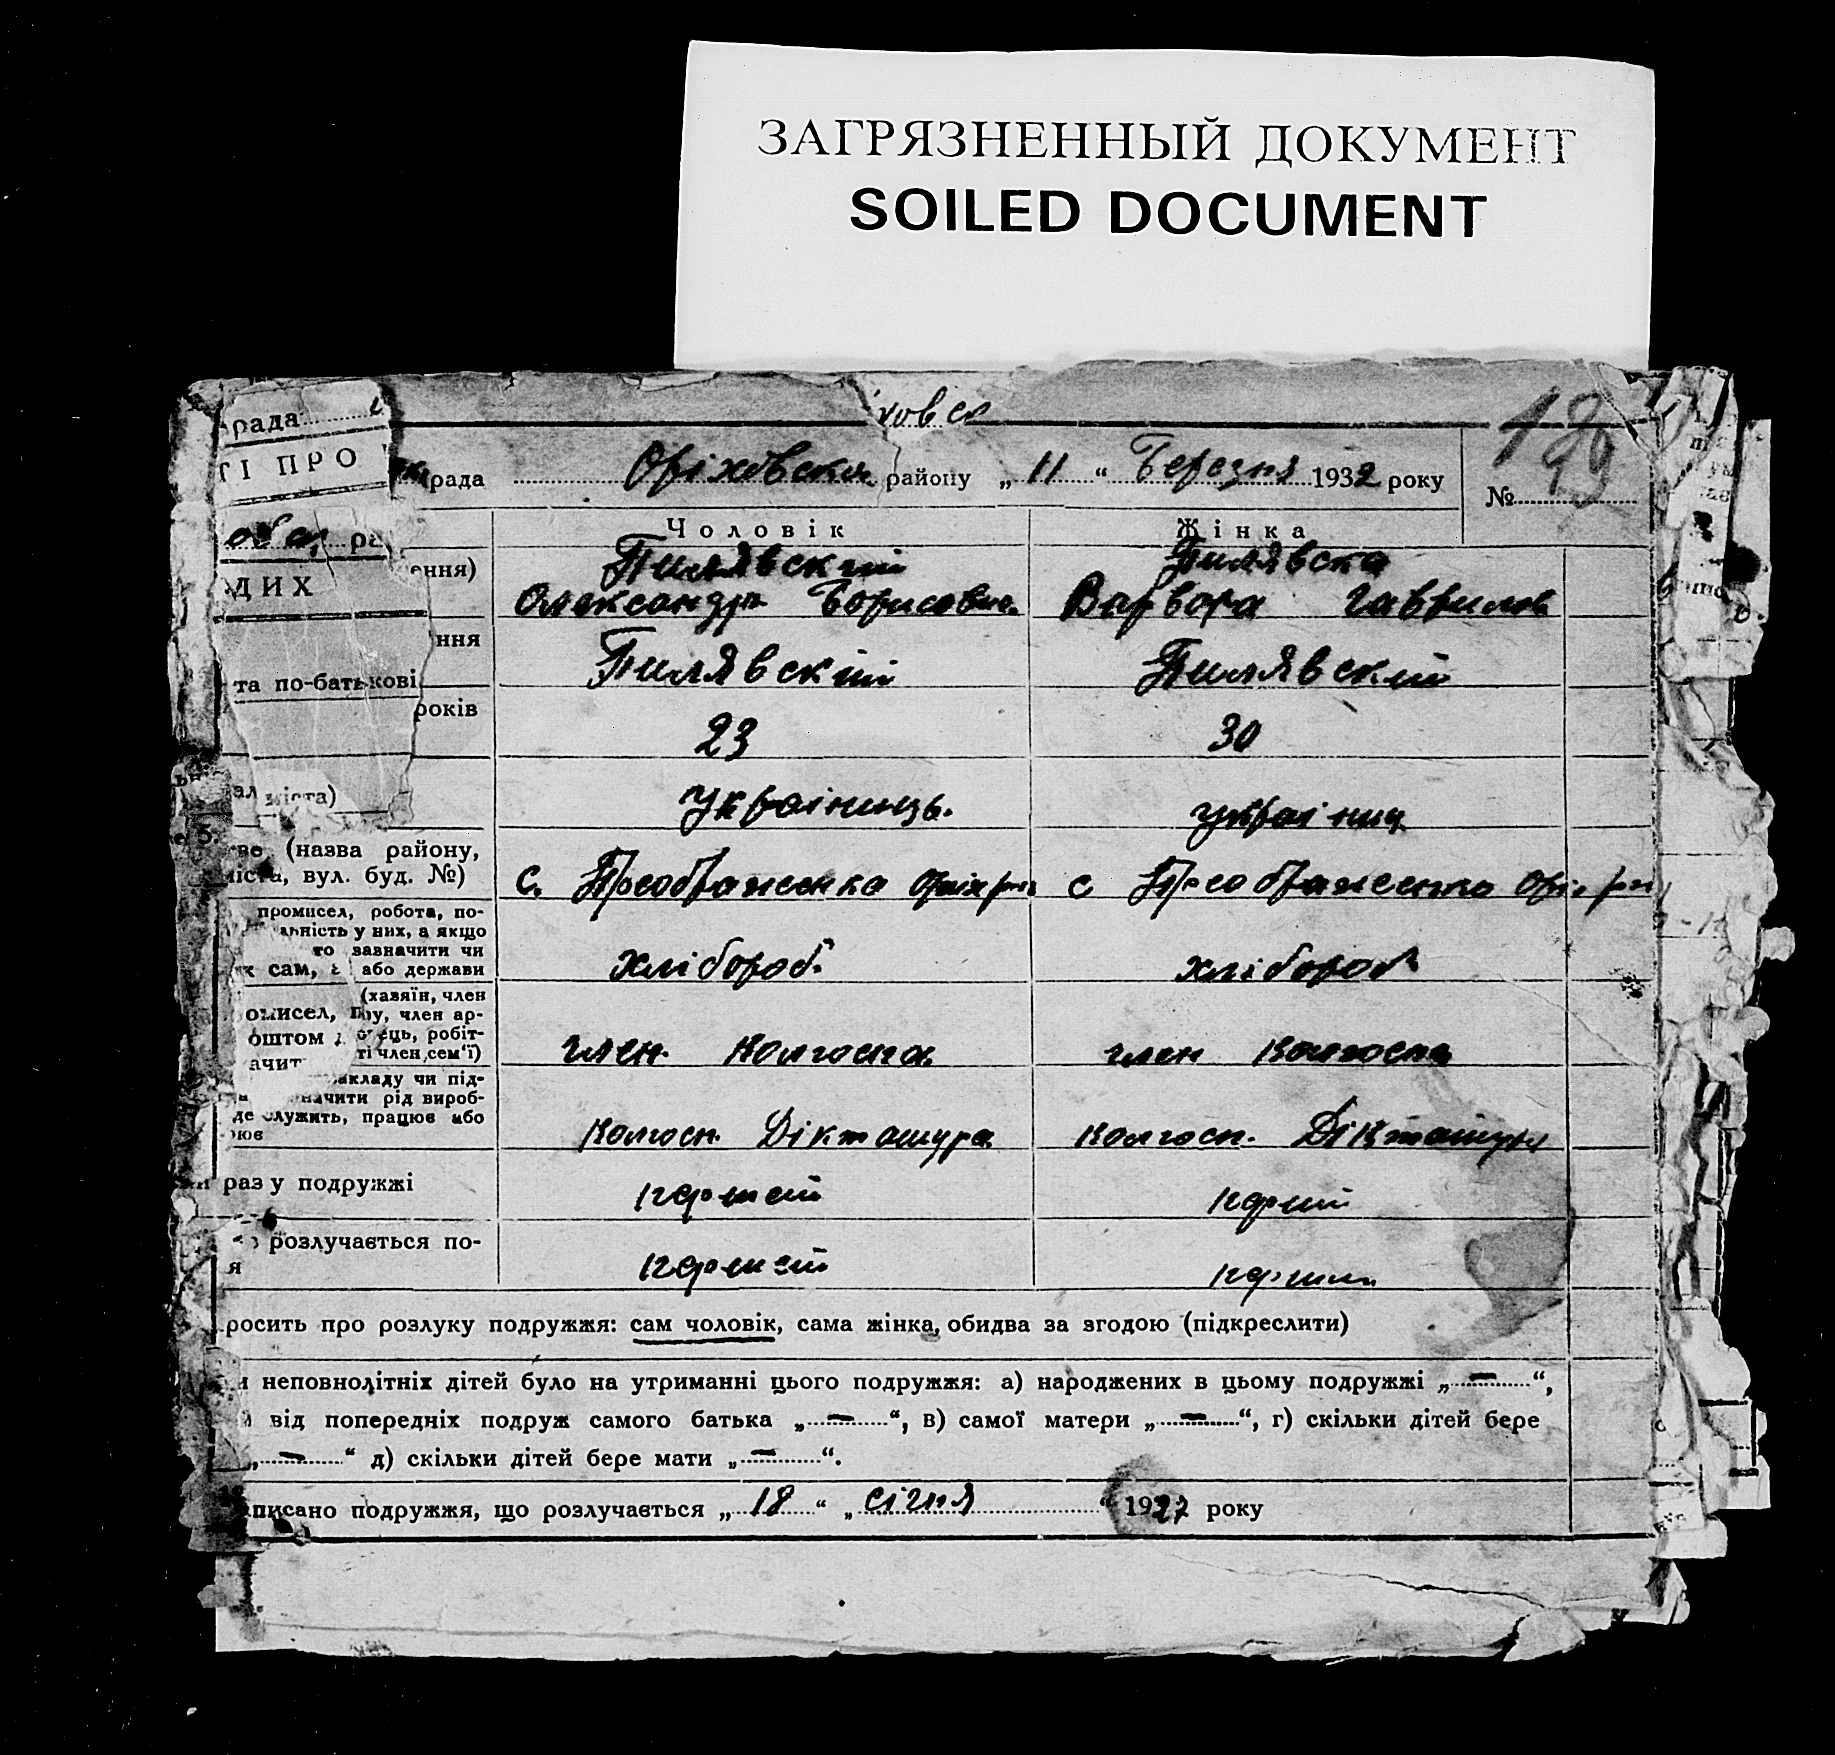 ЗАГРЯЗНЕННЫЙ ДОКУМЕНТ
SOILED DOCUMENT
рада
ТІ ПРО
рада Оріхівська району „ 11 “ Березня 1932 року
№ 99
Чоловік Жінка
Пилявский Пилявска
Олександр Борисович Варвора Гаврилов
ДИХ
ння
Пилявский Пилявский
та по-батькові
років
23 30
міста)
Українинць. україниц
(назва району,
міста, вул. буд. №)
с. Преображенка с Преображенка
промисел, робота, по-
у них, а якщо
то зазначити чи
сам, або держави
хлібороб хлібороб
(хазяїн, член
член ар-
робіт-
член сем'ї)
член колгоспа член колгоспа
закладу чи під-
значити рід вироб-
де служить, працює або
колгосп Діктатура колгосп. Діктатура
раз у подружжі
первый первый
розлучається по-
первый
росить про розлуку подружжя: сам чоловік, сама жінка, обидва за згодою (підкреслити)
неповнолітніх дітей було на утриманні цього подружжя: а) народжених в цьому подружжі „ — “,
від попередніх подруж самого батька „ — “, в) самої матери „ — “, г) скільки дітей бере
„ — “ д) скільки дітей бере мати „ — “.
писано подружжя, що розлучається „ 18 “ „ січня “ 1927 року